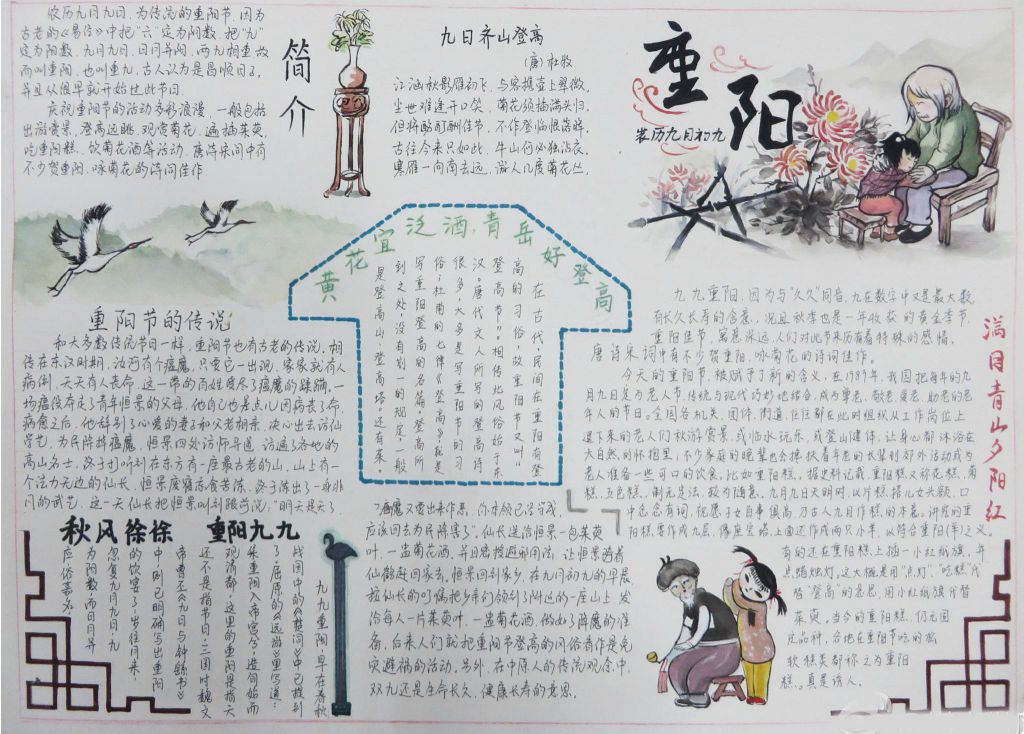 农历九月九日，为传统的重阳节，因为
古老的《易经》中把“六”定为阴数，把“九”
定为阳数，九月九日，日月并阳，两九相重，故
而叫重阳，也叫重九，古人认为是
并且从很早就开始过此节日。
庆祝重阳节的活动多彩浪漫，一般包括
出游赏景、登高远眺、观赏菊花、遍插茱萸、
吃重阳糕、饮菊花酒等活动，唐诗宋词中有
不少贺重阳，咏菊花的诗词佳作
简介
九日齐山登高
(唐) 杜牧
江涵秋影雁初飞，与客携壶上翠微，
尘世难逢开口笑，菊花须插满头归，
但将酩酊酬佳节，不作登临恨落晖，
古往今来只如此，牛山何必独沾衣，
重阳
农历九月初九
黄花宜泛酒，青岳好登高
在古代，民间在重阳有登
高的习俗，故重阳节又叫“
登高节”。相传此风俗始于东
汉。唐代文人所写的登高诗
很多，大多是写重阳节的习
俗；杜甫的七律《登高》就是
写重阳登高的名篇。登高所
到之处，没有划一的规定，一般
是登高山、登高塔。还有采。
重阳节的传说
和大多数传统节日一样，重阳节也有古老的传说。相
传在东汉时期，汝河有个瘟魔，只要它一出现，家家就有人
病倒，天天有人丧命，这一带的百姓受尽了瘟魔的蹂躏。一
场瘟疫夺走了青年恒景的父母，他自己也差点儿因病丧了命，
病愈之后，他辞别了心爱的妻子和父老相亲，决心出去访仙
学艺，为民除掉瘟魔。恒景四处访师寻道，访遍了各地的
高山名士，终于打听到在东方有一座最古老的山，山上有一
个法力无边的仙长，恒景废寝忘食苦练，终于练出了一身非
凡的武艺，这一天仙长把恒景叫到跟前说：“明天是
瘟魔又要出来作
应该回去为民除害了”。仙长送给恒景一包茱萸
叶，一盅菊花酒，并且密授避邪用法，让恒景骑着
仙鹤赶回家去。恒景回到家乡，在九月初九的早晨
按仙长的叮嘱把乡亲们领到了附近的一座山上，发
给每人一片茱萸叶，一盅菊花酒，做好了降魔的准
备，后来人们就把重阳节登高的风俗看作是免
灾避祸的活动。另外，在中原人的传统观念中，
双九还是生命长久、健康长寿的意思。
满目青山夕阳红
九九重阳，因为与“久久”同音，九在数字中又是最大数，
有长久长寿的含意，况且秋季也是一年收获的黄金季节，
重阳佳节，寓意深远，人们对此节来历有着特殊的感情，
唐诗宋词中有不少贺重阳，咏菊花的诗词佳作。
今天的重阳节，被赋予了新的含义，在1989年，我国把每年的九
月九日定为老人节，传统与现代巧妙地结合，成为尊老、敬老、爱老、助老的老
年人的节日。全国各机关、团体、街道，往往都在此时组织从工作岗位上
退下来的老人们秋游赏景，或临水玩乐，或登山健体，让身心都沐浴在
大自然的怀抱里，不少家庭的晚辈也会搀扶着年老的长辈到郊外活动或为
老人准备一些可口的饮食。比如重阳糕。据史料记载，重阳糕又称花糕、菊
糕、五色糕，制无定法，较为随意，九月九日天明时，以片糕搭儿女头额，口
中念念有词，祝愿子女百事俱高，乃古人九月作糕的本意。讲究的重
阳糕要作成九层，像座宝塔，上面还作成两只小羊，以符合重阳(羊)之义。
有的还在重阳糕上插一小红纸旗，并
点蜡烛灯。这大概是用“点灯”、“吃糕”代
替“登高”的意思，用小红纸旗代替
茱萸，当今的重阳糕，仍无固
定品种，各地在重阳节吃的松
软糕类都称之为重阳
糕。
秋风徐徐 重阳九九
九九重阳，早在春秋
战国中的《楚词》中已提到
了。屈原的《远游》里写道：“
集重阳入帝宫兮，造旬始而
观清都”，这里的重阳是指天
还不是指节日。三国时魏文
帝曹丕《九日与钟繇书》
中，则已明确写出重阳
的饮宴了：“岁往月来
忽复九月九日，九
为阳数，而日月并
应，俗嘉其名